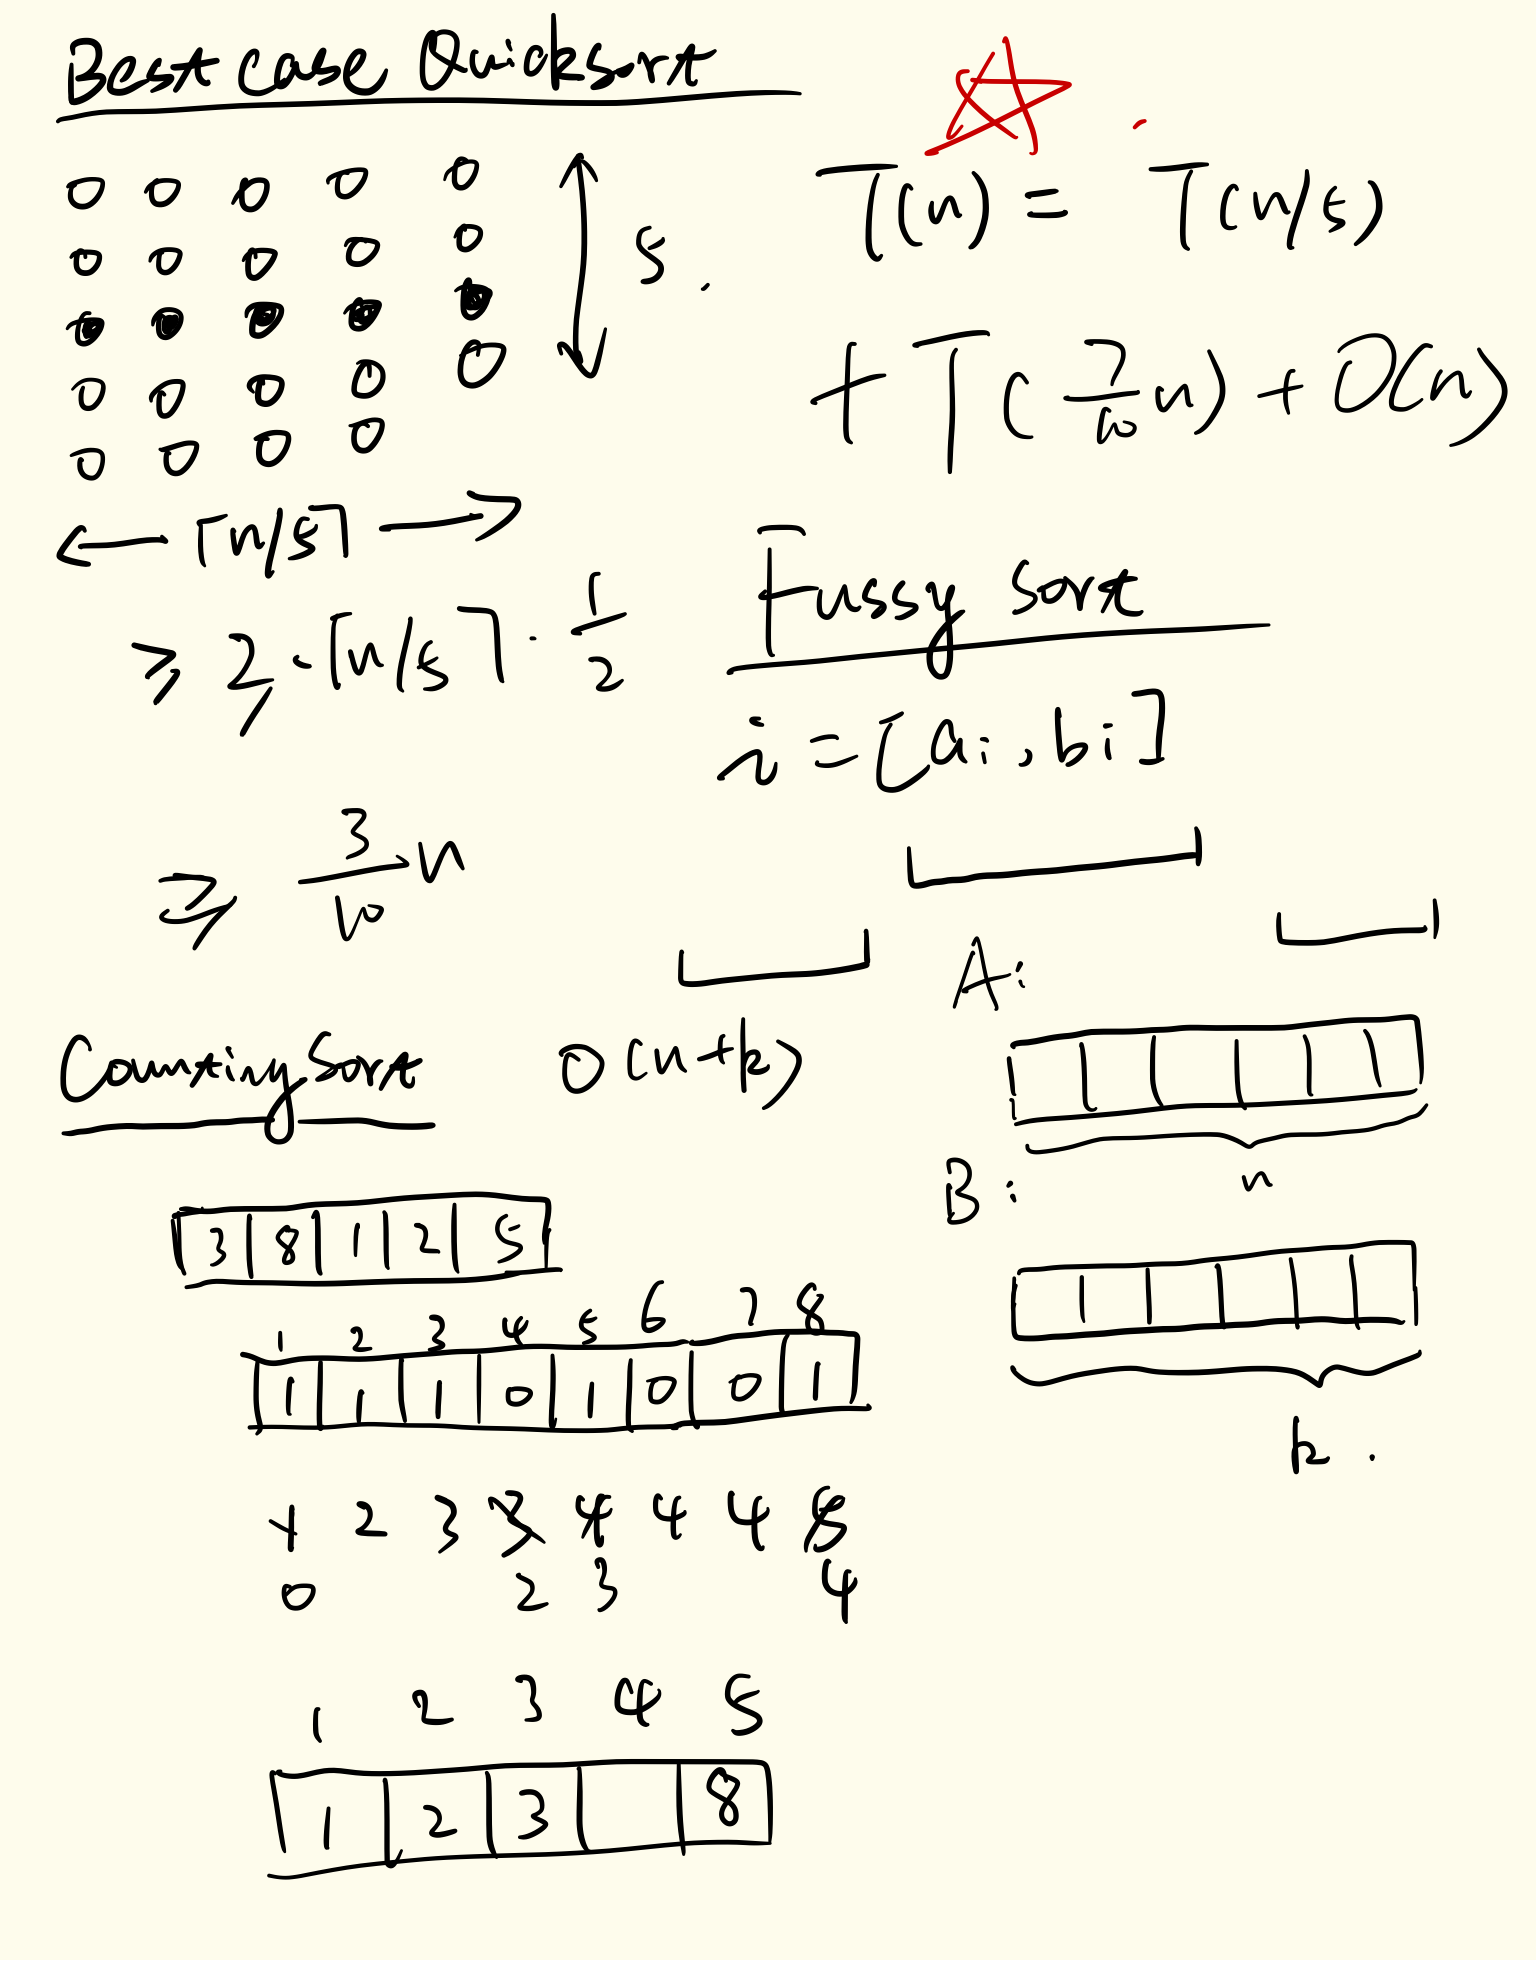 Best case Quicksort
5.
T(n) = T(n/5)
+ T(7/10 n) + O(n)
⌈n/5⌉
≥ 2 · ⌈n/5⌉ · 1/2
≥ 3/10 n
Fussy Sort
i = [ai, bi]
Counting Sort O(n+k)
A:
n
B:
k.
3 8 1 2 5
1 2 3 4 5 6 7 8
1 1 1 0 1 0 0 1
1 2 3 3 4 4 4 5
0 2 3 4
1 2 3 4 5
1 2 3 8